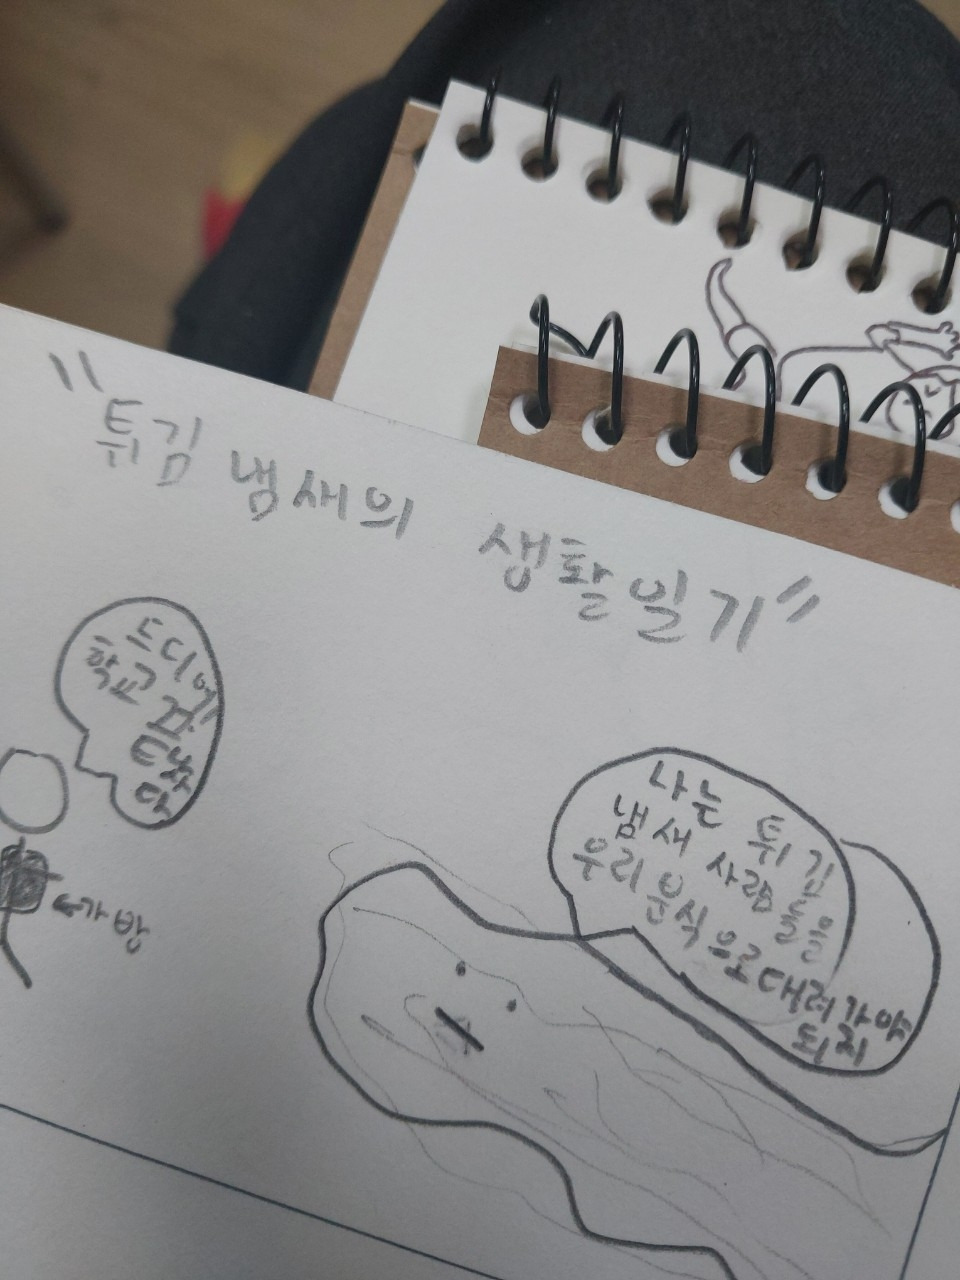 "튀김 냄새의 생활일기"
드디어
학교 끝
났
다
←가방
나는 튀김
냄새 사람들을
우리 분식으로 대려가야
되지